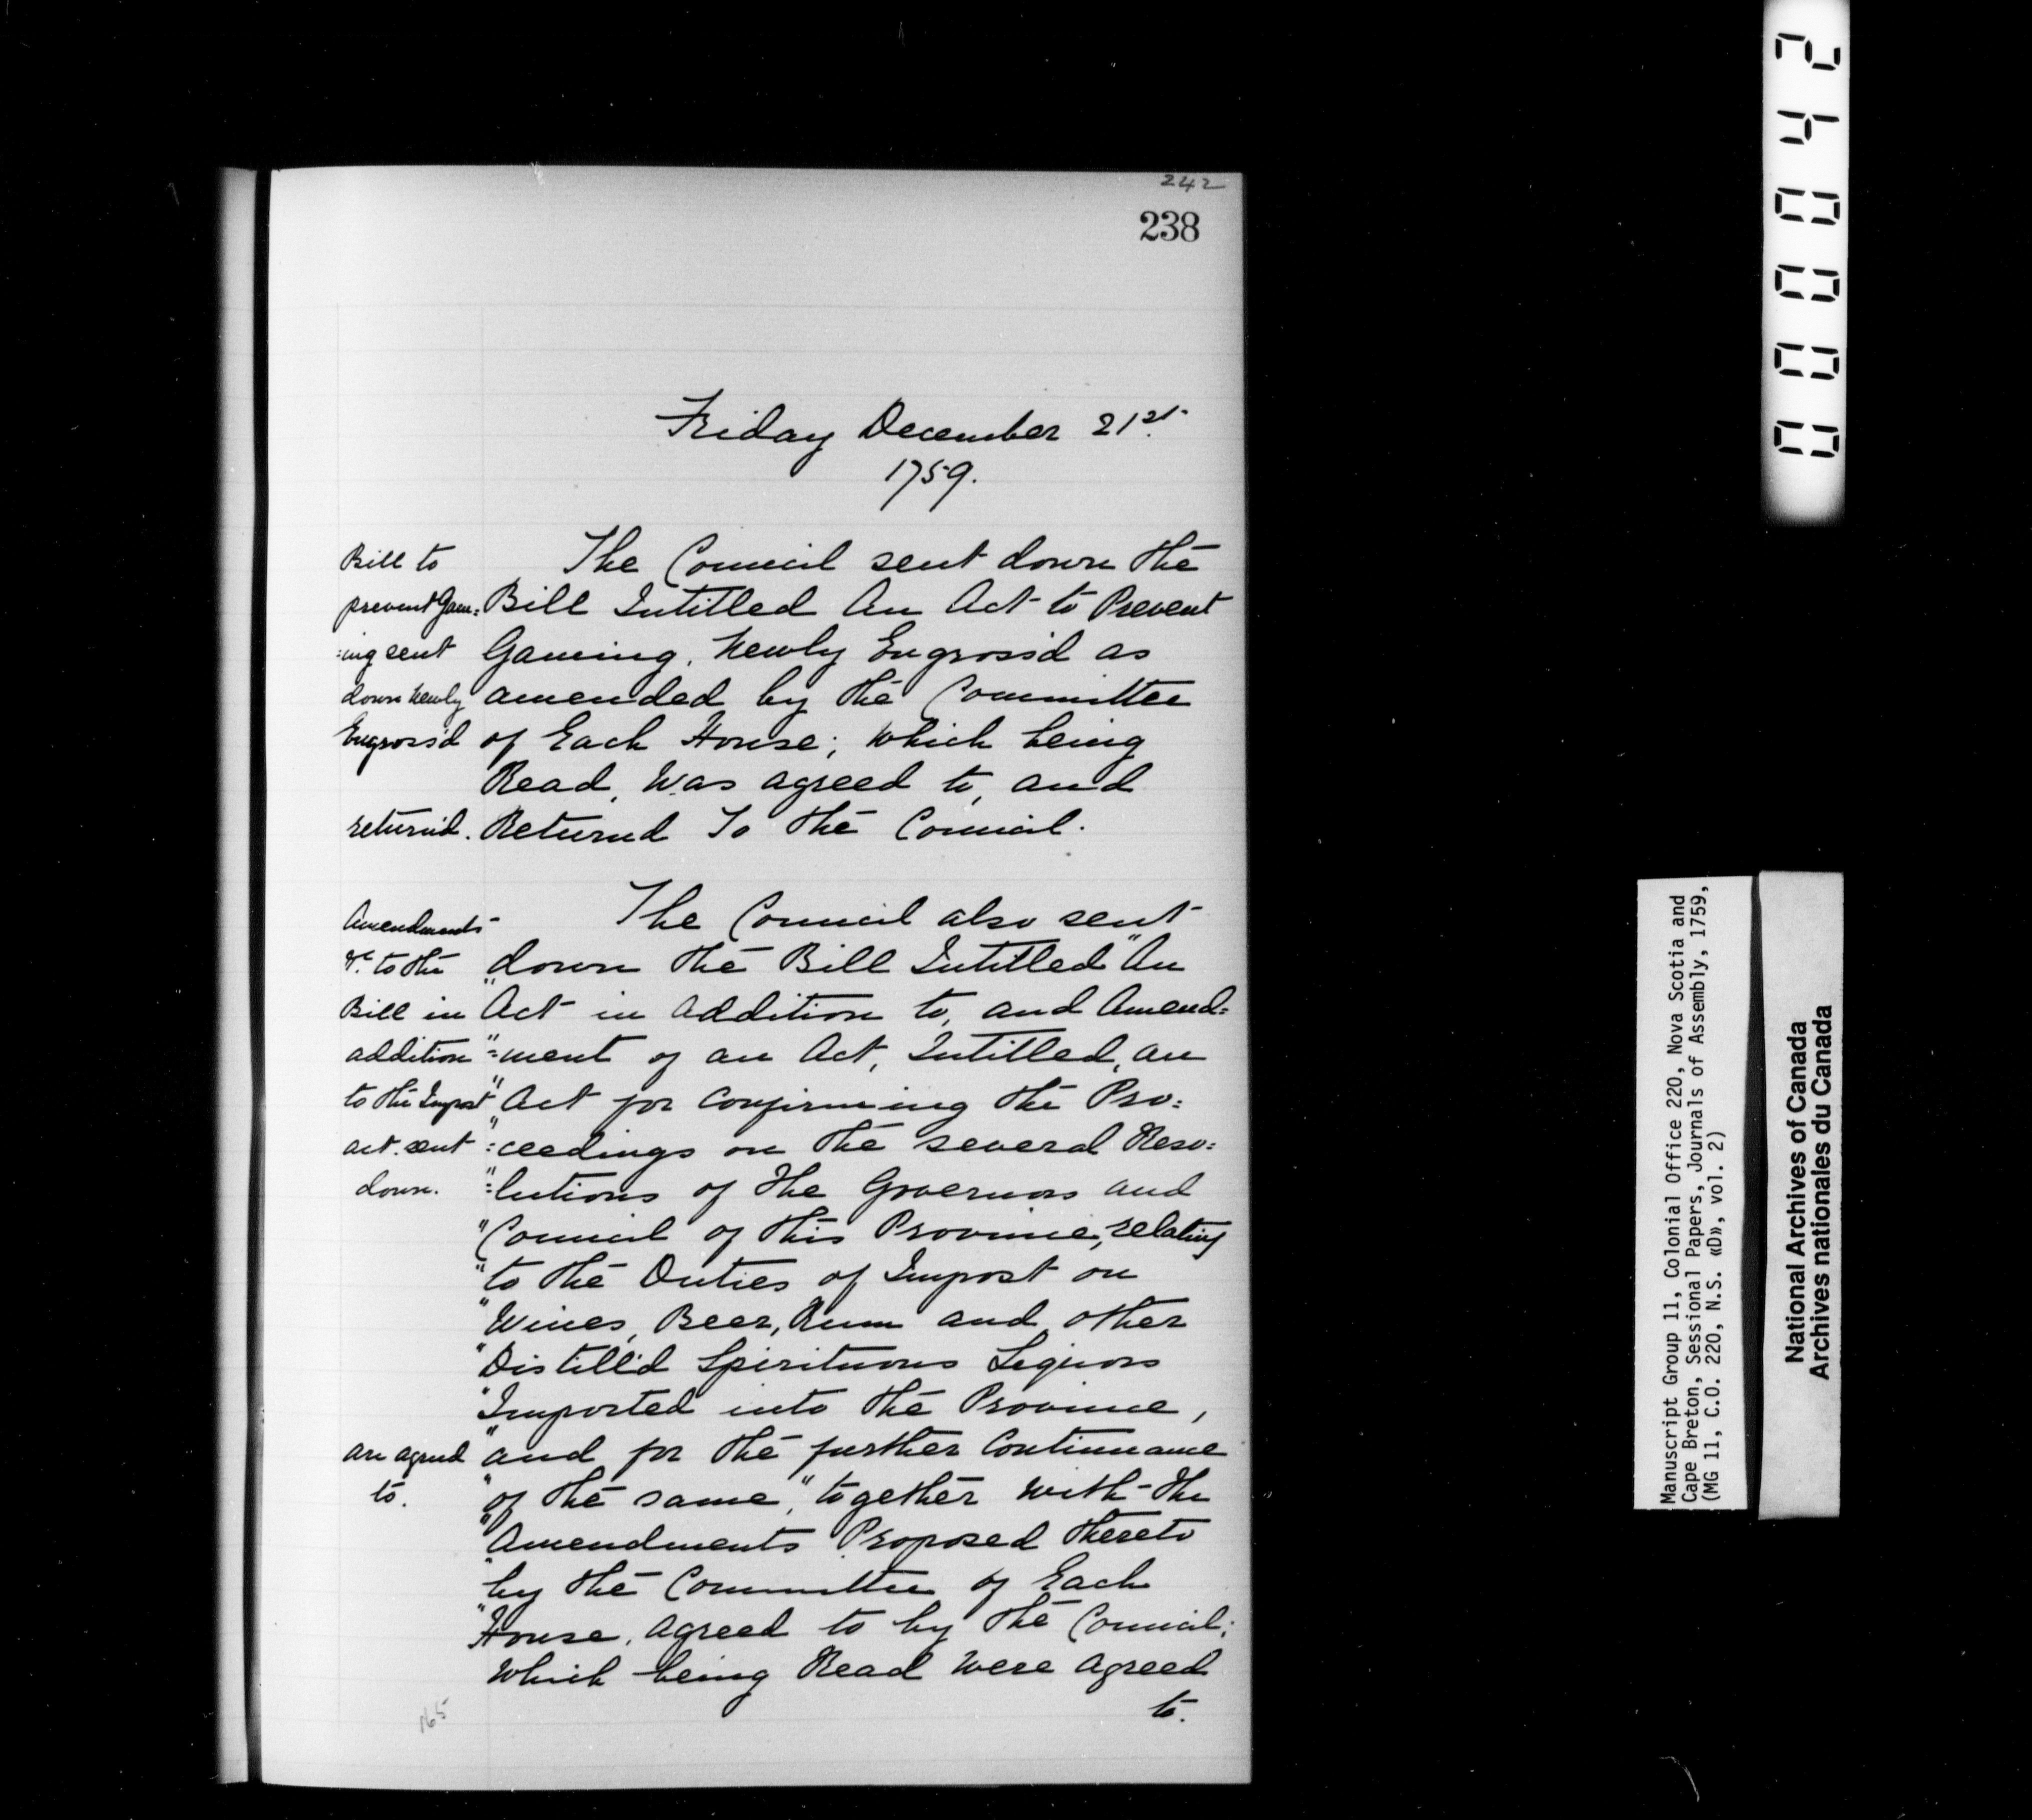 242
238
Friday December 21st.
1759.
Bill to
prevent Gam=
=ing sent
down newly
Engross'd
return'd.
The Council sent down the
Bill Intitled An Act to Prevent
Gaming, Newly Engross'd as
amended by the Committee
of Each House; which being
Read, Was agreed to, and
Returned To the Council.
Amendments
&c. to the
Bill in
addition
to the Impost
act sent
down.
are agreed
to.
The Council also sent
down the Bill Intitled "An
"Act in addition to, and Amend=
"=ment of an Act, Intitled, an
"Act for Confirming the Pro=
"=ceedings on the several Reso=
"=lutions of the Governors and
"Council of this Province, relating
"to the Duties of Impost on
"Wines, Beer, Rum and other
"Distill'd Spirituous Liquors
"Imported into the Province,
"and for the further Continuance
"of the same," together with the
"Amendments Proposed thereto
"by the Committee of Each
"House, agreed to by the Council;
Which being Read were agreed
to.
165
000042
Manuscript Group 11, Colonial Office 220, Nova Scotia and
Cape Breton, Sessional Papers, Journals of Assembly, 1759,
(MG 11, C.O. 220, N.S. «D», vol. 2)
National Archives of Canada
Archives nationales du Canada